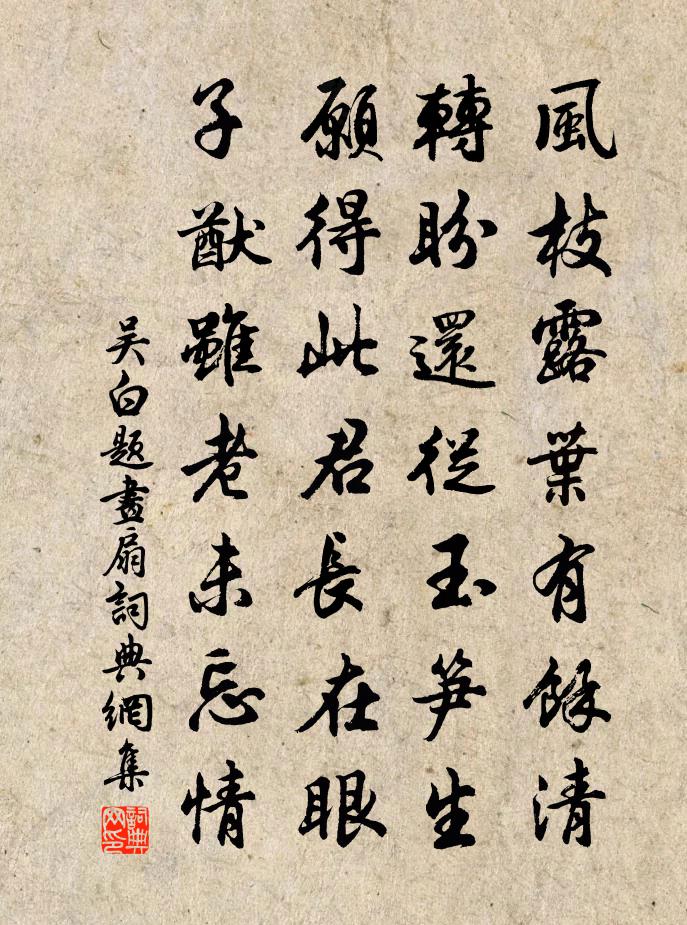 風枝露葉有餘清
轉盼還從玉笋生
願得此君長在眼
子猷雖老未忘情
吴白題畫扇詞典網集
詞典网印